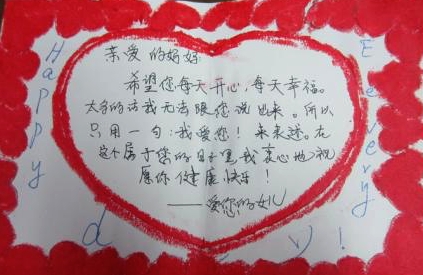 亲爱的妈妈
希望您每天开心,每天幸福。
太多的话我无法跟您说出来。所以
只用一句:我爱您!来表达。在
这个属于您的日子里,我衷心地祝
愿你健康快乐!
——爱您的女儿
Happy
Every
d